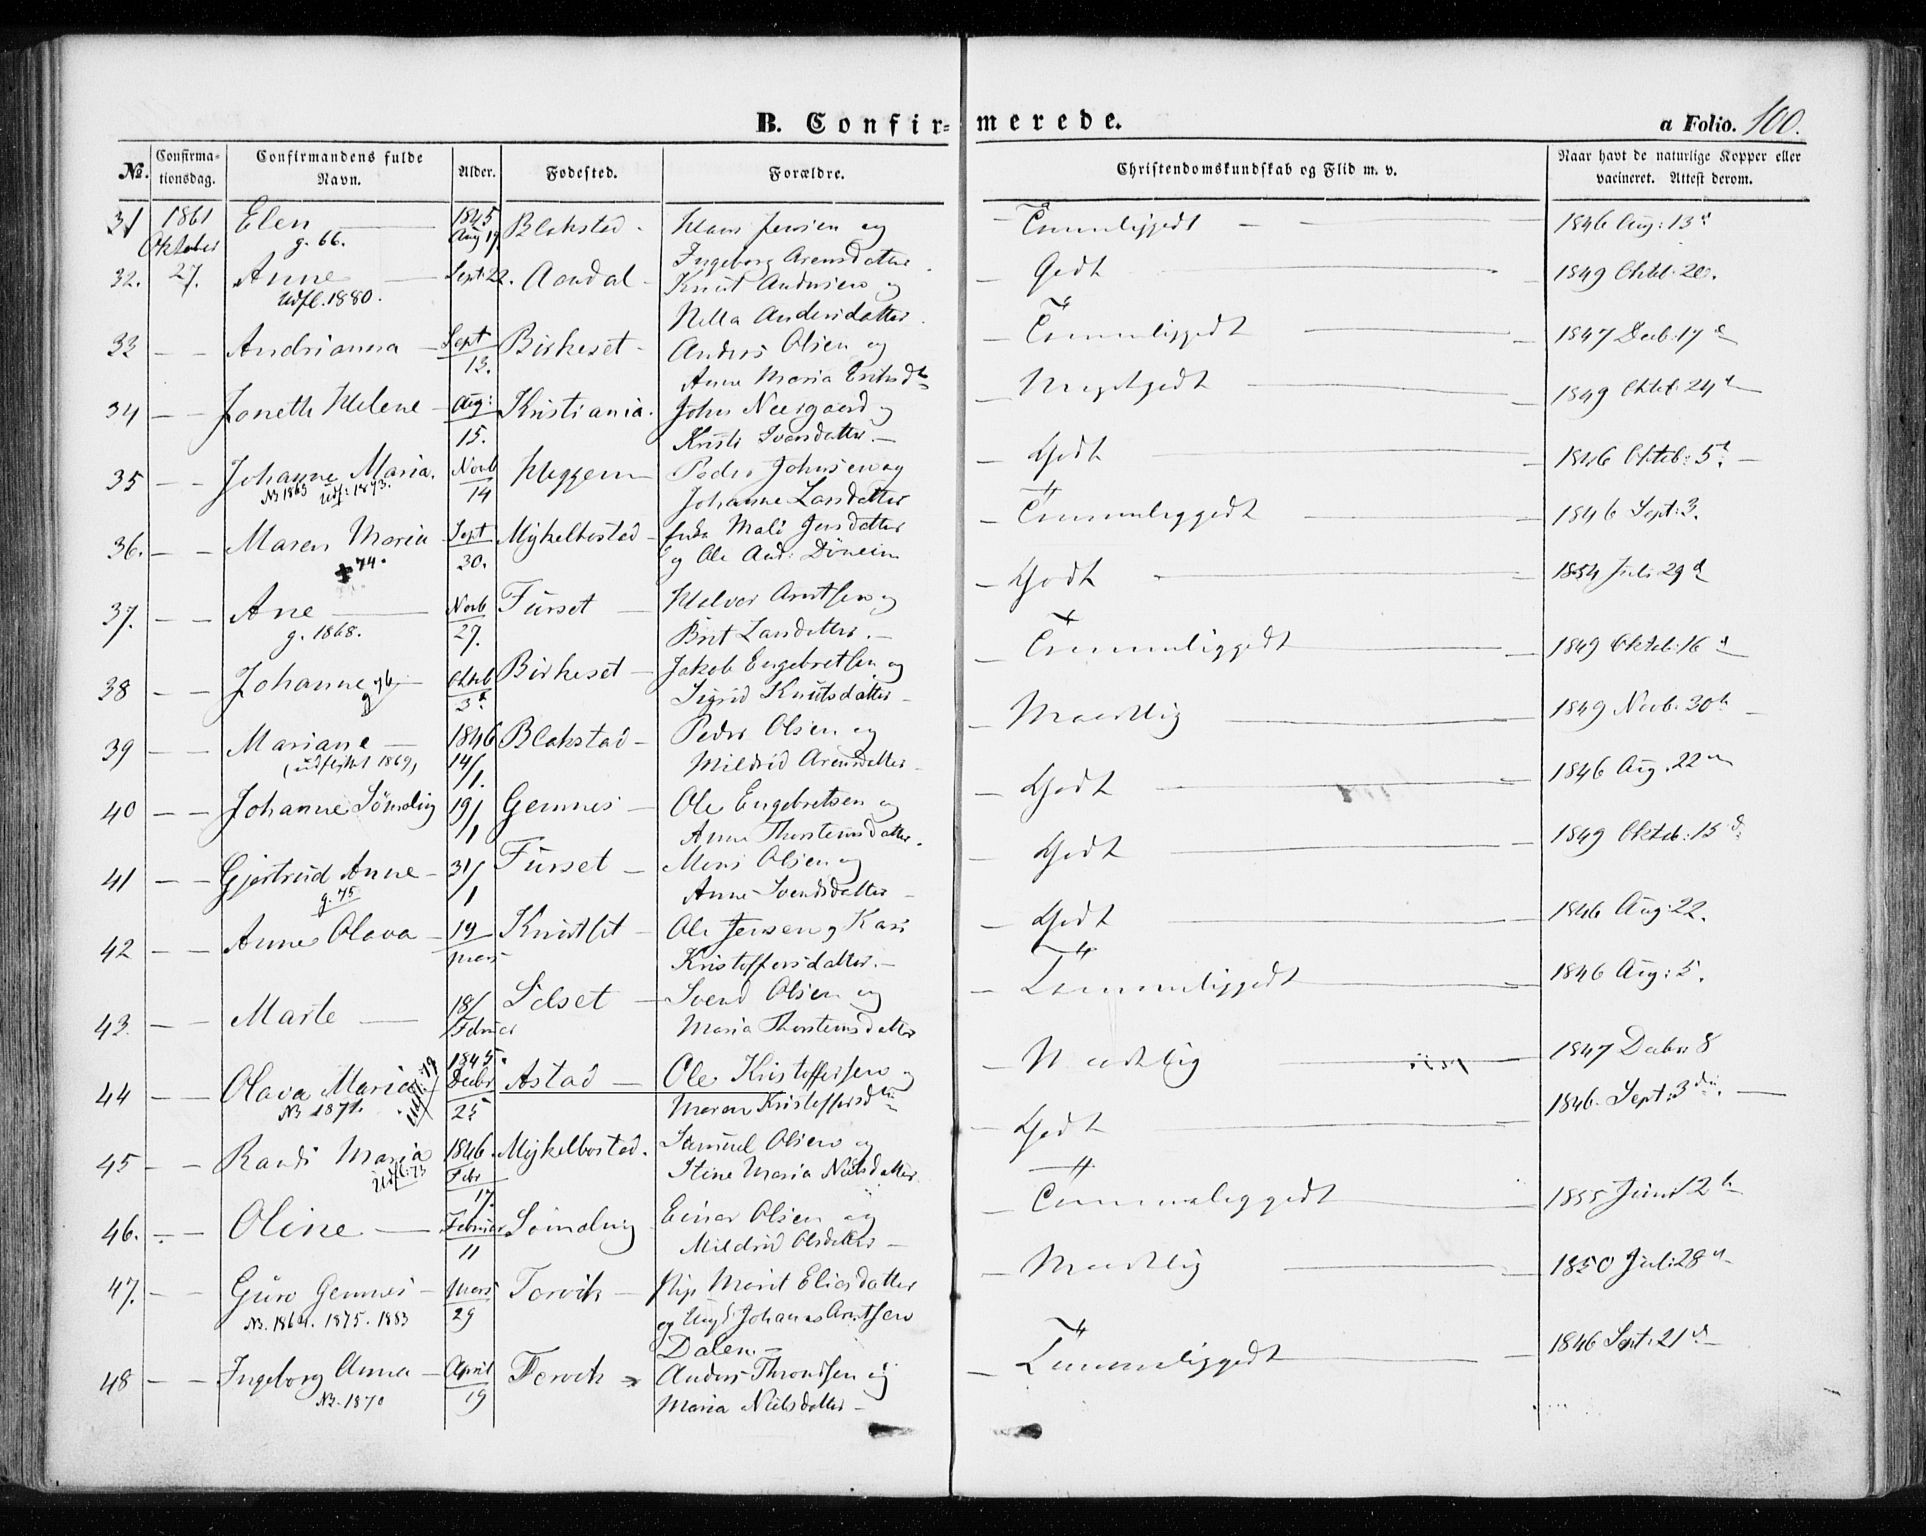 B. Confir- merede.
a Folio. 100.
No. Confirma-tionsdag. Confirmandens fulde Navn. Alder. Fødested. Forældre. Christendomskundskab og Flid m. v. Naar havt de naturlige Kopper eller vacineret. Attest derom.
31 1861 Oktober Elen — 1845 Aug 19 Blakstad - Klaus Jensen og
g. 66. Ingeborg Arensdatter
1846 Aug: 13d
32. 27. Anne — Sept: 22. Aandal - Knut Andersen og
Udfl. 1880. Nella Andersdatter.
Godt 1849 Oktb: 20.
33 — — Andrianna — Sept 13. Birkeset - Anders Olsen og
Anne Maria
1847 Decb: 17d
34 — — Jonette Helene — Aug: 15. Kristiania. John Neergaard og
Kristi Ivarsdatter. —
Megetgodt 1849 Oktob: 24d
35 — — Johanne Maria. Novb 14 Heggem Peder Johnsen og
NB 1863 Udf: 1873. Johanne Larsdatter
Godt 1846 Oktob: 5d
36. — — Maren Maria Sept 30. Mykelbostad — Mali Jensdatter
✝ 74. og Ole And:
1846 Sept: 3.
37. — — Ane — Novb 27. Furset — Halvor Arntsen og
g. 1868. Brit Larsdatter. —
Godt 1854 Juli 29d
38 — — Johanne Oktob 3d Birkeset — Jakob Engebretsen og
g 76 Sigrid Knutsdatter —
1849 Oktob: 16d
39 — — Mariane — 1846 14/1. Blakstad — Peder Olsen og
(udflyttet 1869) Mildrid Arensdatter —
Maadelig 1849 Novb. 30te
40 — — Johanne Sømdlig 19/1 Gemnes — Ole Engebretsen og
Anne Thorstensdatter.
Godt 1846 Aug. 22
41 — — Gjertrud Anne — 31/1 Furset — Mons Olsen og
g. 75 Anne Svendsdatter —
Godt 1849 Oktob: 15d.
42 — — Anne Olava — 19 Mars Knutset — Ole Jensen og Kari
Kristoffersdatter. —
Godt 1846 Aug: 22.
43. — — Marte — 18/ Februar Sølset — Svend Olsen og
Maria Thorstensdatter
1846 Aug: 5.
44 — — Olava Maria 1845. Decbr 25 Astad — Ole Kristoffersen og
NB. 1871. Maren Kristoffersd
Maadelig 1847 Decbr 8
45 — — Randi Maria 1846. Febr 17. Mykelbostad. Samuel Olsen og
Udfl: 73 Stine Maria Nielsdatter
Godt 1846. Sept: 3die. —
46. — — Oline — Februar 11 Sømdlig Einar Olsen og
Mildrid Olsdatter —
1855 Juni 12te
47. — — Guro Gemnes — Mars 29 Torvik — Pige Marit Eliasdatter
NB. 1864. 1875. 1883 og Ungk Johannes Arntsen
Dalen. —
Maadelig 1850 Juli: 28d
48 — — Ingeborg Anna — April 19 Torvik — Anders Throndsen og
NB. 1870 Maria Nielsdatter —
1846 Sept: 21d